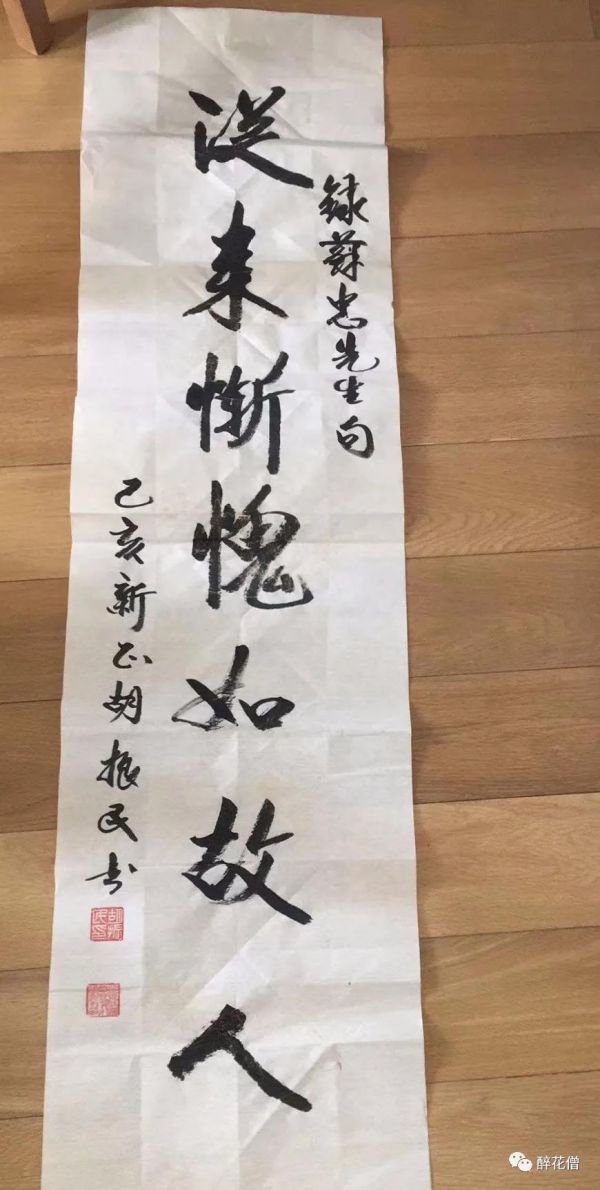 録蘇忠先生句
從来慚愧如故人
己亥新正胡振民书
醉花僧